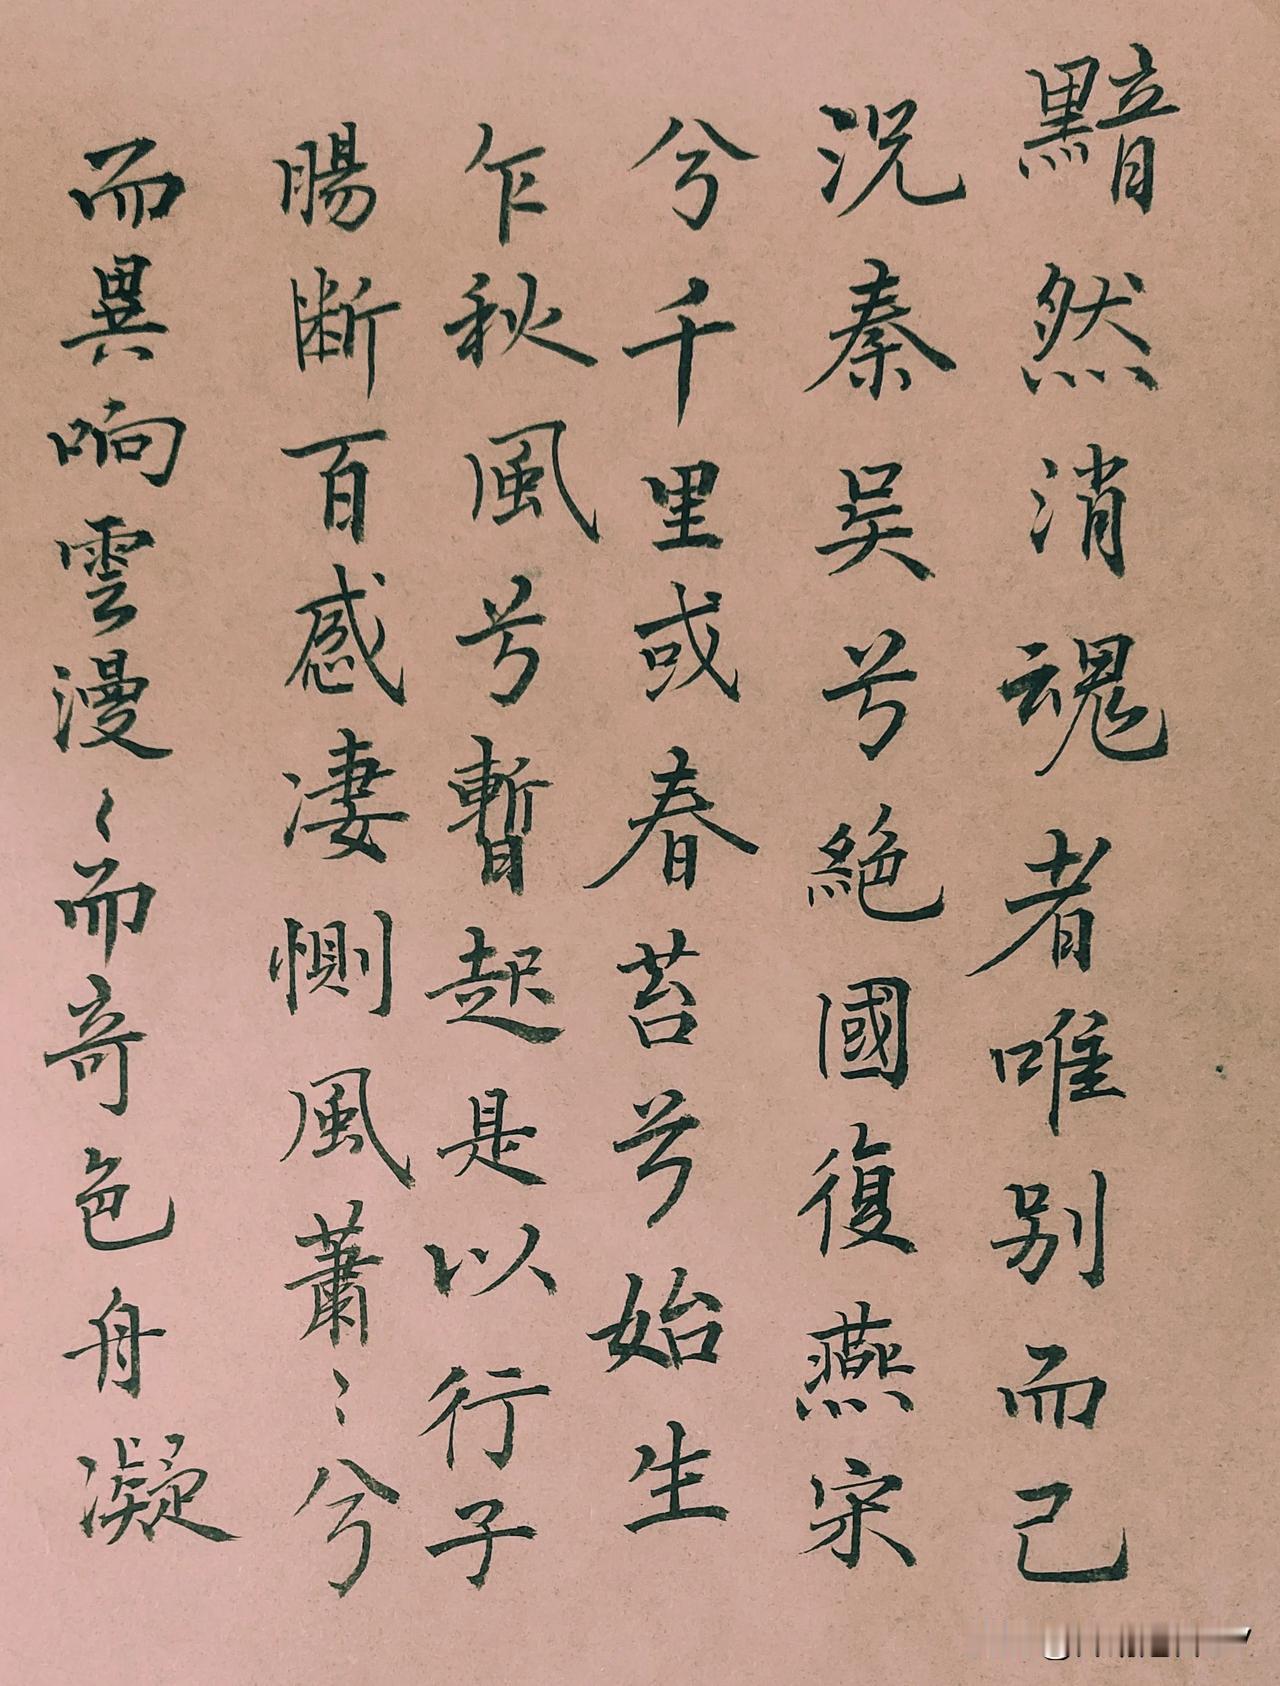 黯然消魂者唯别而已
況秦吳兮絕國復燕宋
兮千里或春苔兮始生
乍秋風兮暫起是以行子
腸斷百感凄惻風蕭〻兮
而異响雲漫〻而奇色舟凝